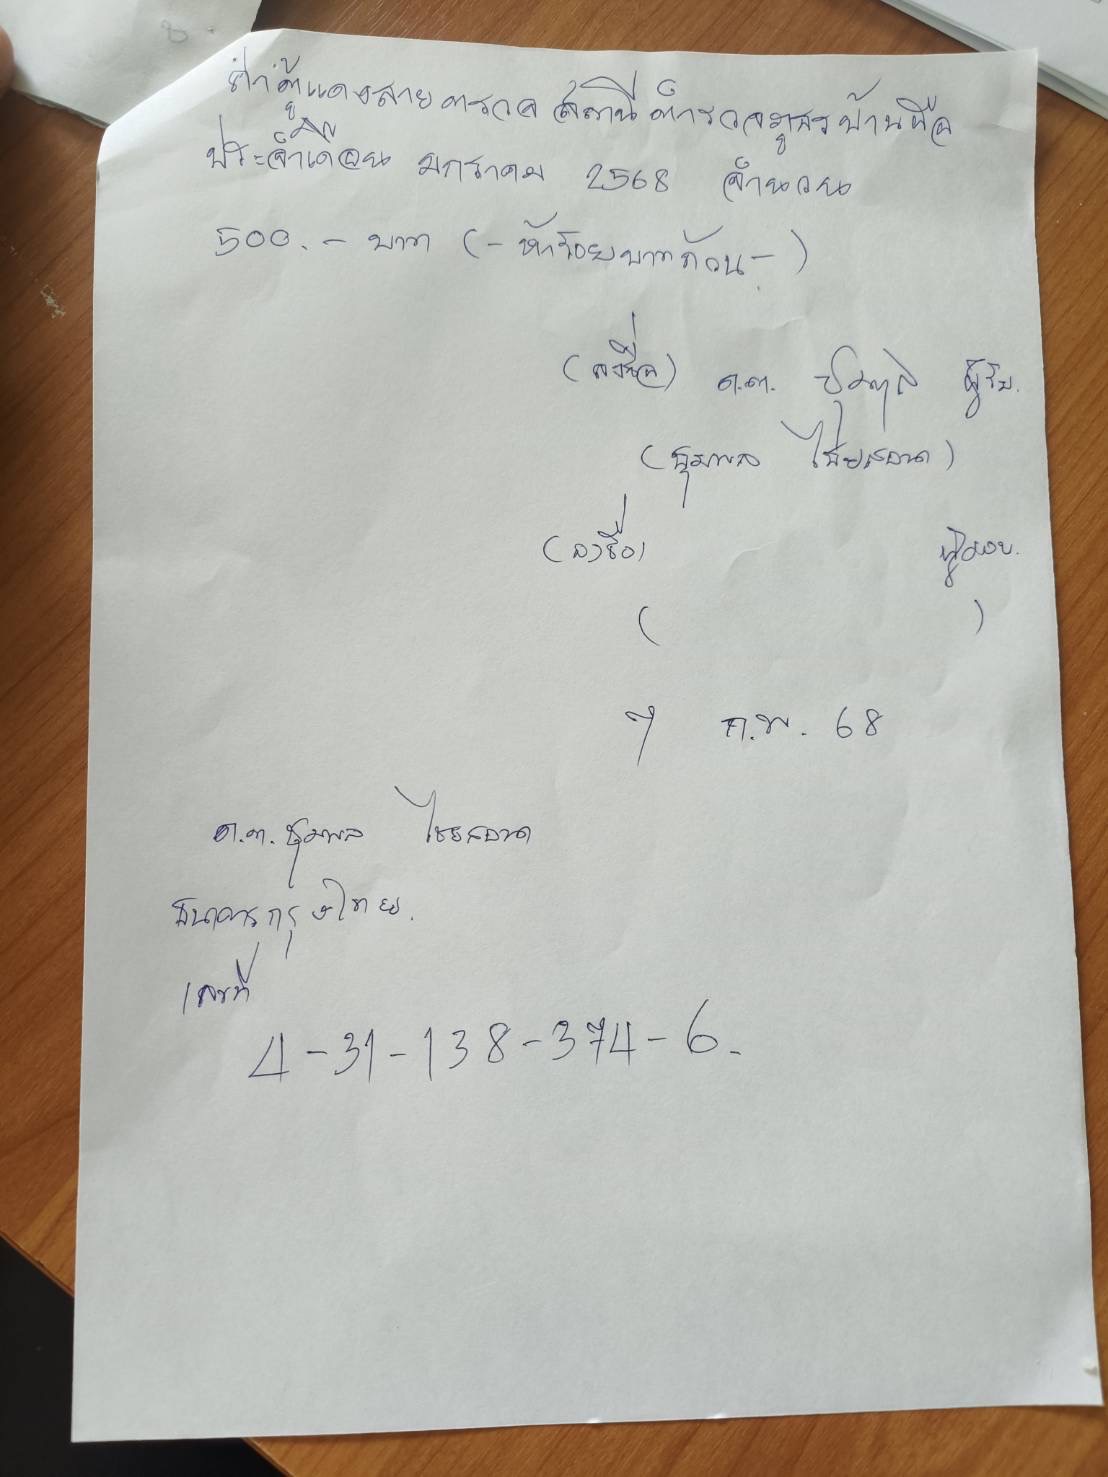 ค่าตู้แดงสายตรวจ สถานีตำรวจภูธรบ้านผือ
ประจำเดือน มกราคม 2568 จำนวน
500.- บาท (- ห้าร้อยบาทถ้วน -)
(ลงชื่อ) ด.ต. ชุมพล ผู้รับ.
(ชุมพล ไชยสอน)
(ลงชื่อ)
( )
7 ก.พ. 68
ด.ต. ชุมพล
ธนาคารกรุงไทย.
เลขที่
4-31-138-374-6.